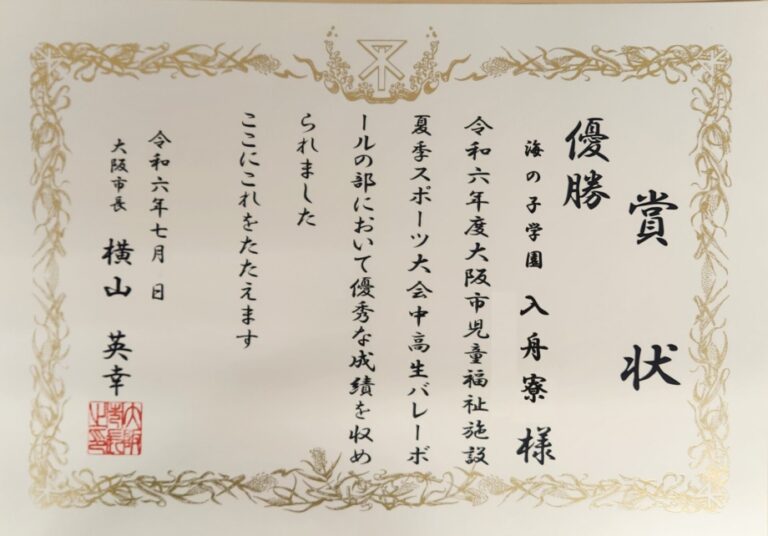 賞状
優勝
海の子学園 入舟寮様
令和六年度大阪市児童福祉施設
夏季スポーツ大会中高生バレーボ
ールの部において優秀な成績を収め
られました
ここにこれをたたえます
令和六年七月 日
大阪市長 横山英幸
大阪市長之印